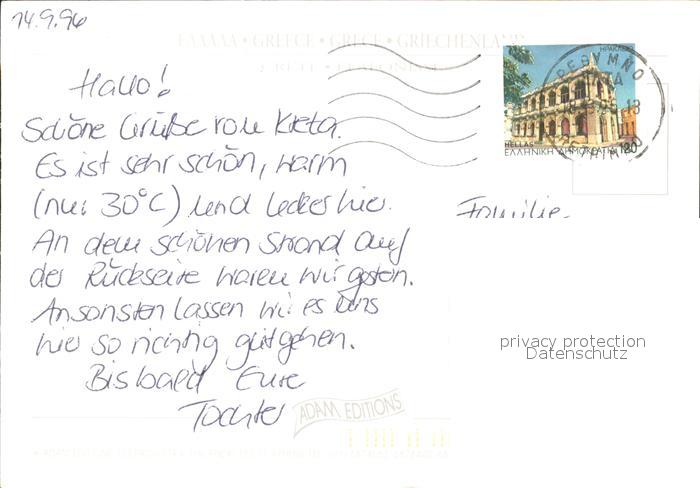 14.9.96
ΕΛΛΑΔΑ • GREECE • GRECE • GRIECHENLAND
Hallo!
Schöne Grüße von Kreta.
Es ist sehr schön, warm
(nur 30°C) und lecker hier.
An dem schönen Strand auf
der Rückseite waren wir gestern.
Ansonsten lassen wir es uns
hier so richtig gutgehen.
Bis bald Eure
Tochter
HELLAS
ΕΛΛΗΝΙΚΗ ΔΗΜΟΚΡΑΤΙΑ 120
ΡΕΘΥΜΝΟ
Familie
privacy protection
Datenschutz
ADAM EDITIONS